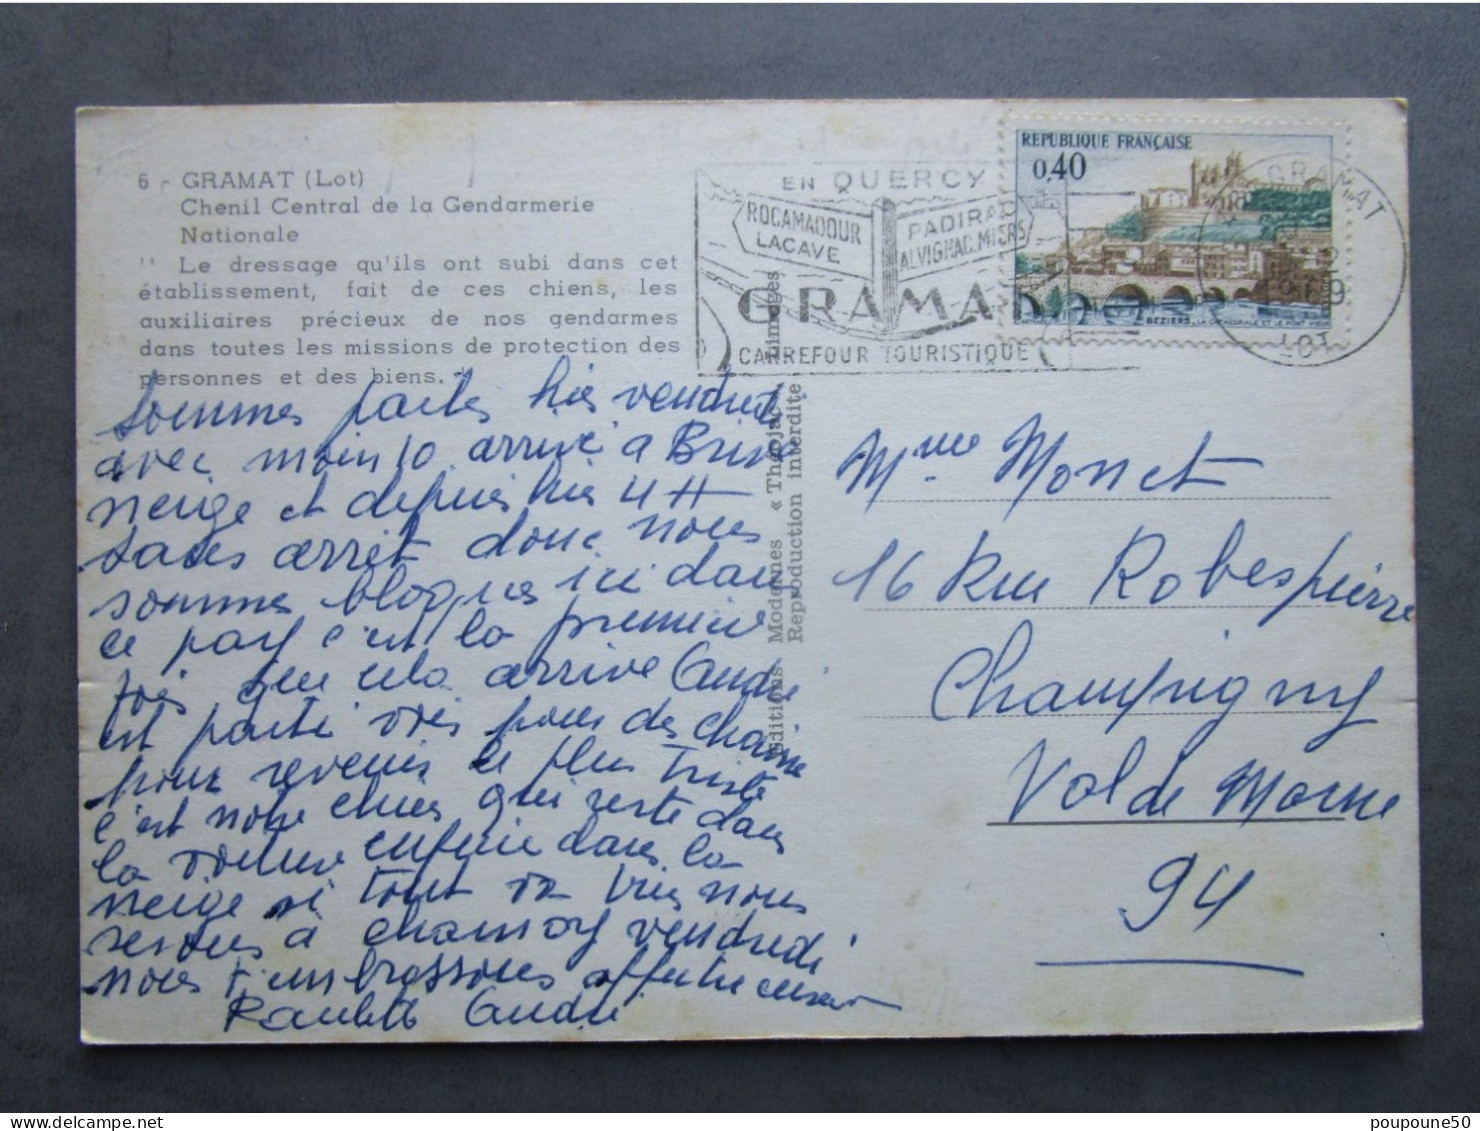 6 - GRAMAT (Lot)
Chenil Central de la Gendarmerie
Nationale
" Le dressage qu'ils ont subi dans cet
établissement, fait de ces chiens, les
auxiliaires précieux de nos gendarmes
dans toutes les missions de protection des
personnes et des biens. "
sommes partes hier vendredi
avec moin 10 arrivé a Brive
neige et depuis hier 4 H
sans arrêt donc nous
sommes bloques ici dans
ce pay c'est la premiere
fois que cela arrive André
est parti voir pour des chaine
pour revenir le plus triste
c'est notre chien qui reste dans
la voiture enfin dans la
neige si tout va bien nous
serons a vendredi
nous t'embrassons affectueusement
Paulette André
Editions Modernes « Théojac », Limoges
Reproduction interdite
EN QUERCY
ROCAMADOUR
LACAVE
PADIRAC
ALVIGNAC.MIERS
GRAMAT
CARREFOUR TOURISTIQUE
REPUBLIQUE FRANÇAISE
0,40
BEZIERS, LA CATHEDRALE ET LE PONT VIEUX
GRAMAT
LOT
Mme Monet
16 Rue Robespierre
Champigny
Val de Marne
94
poupoune50